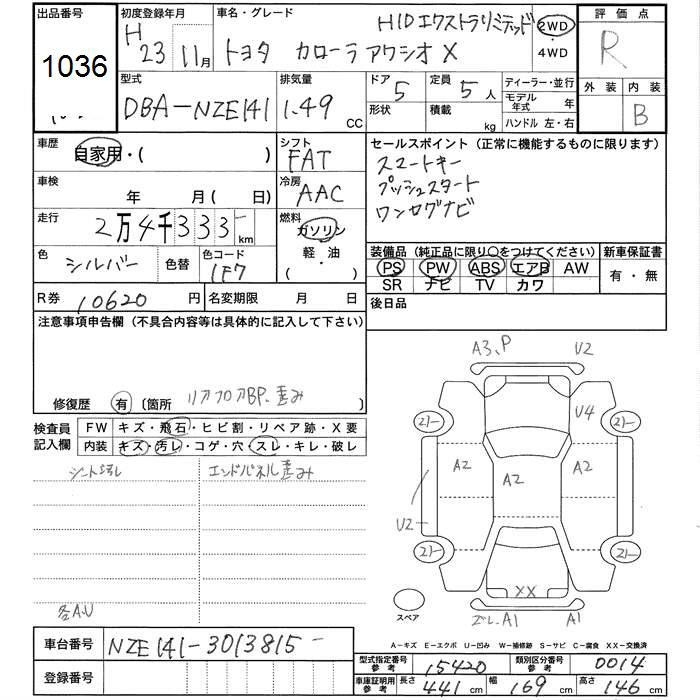 出品番号
1036
初度登録年月
H 23 11月
車名・グレード
HIDエクストラリミテッド
トヨタ カローラアクシオ X
2WD・4WD
評価点
R
外装 内装
B
型式
DBA-NZE141
排気量
1.49 CC
ドア 5
形状
定員 5人
積載 kg
ディーラー・並行
モデル年式 年
ハンドル 左・右
車歴
自家用・( )
シフト
FAT
セールスポイント(正常に機能するものに限ります)
スマートキー
プッシュスタート
ワンセグナビ
車検
年 月( 日)
冷房
AAC
走行
2万4千333 km
燃料
ガソリン
軽・油
・( )
色
シルバー
色替
色コード
1F7
装備品(純正品に限り○をつけてください)
PS PW ABS エアB AW
SR ナビ TV カワ
新車保証書
有・無
R券 10620円
名変期限 月 日
後日品
注意事項申告欄(不具合内容等は具体的に記入して下さい)
修復歴 有 〔箇所 リアフロアBP.歪み
検査員記入欄
FW キズ・飛石・ヒビ割・リペア跡・X要
内装 キズ・汚レ・コゲ・穴・スレ・キレ・破レ
シート汚レ
エンドパネル歪み
各A.U
A3,P
U2
U4
A2
A2
A2
U2
XX
A1
A1
スペア
A-キズ E-エクボ U-凹み W-補修跡 S-サビ C-腐食 XX-交換済
車台番号 NZE141-3013815
登録番号
型式指定番号 参考 15420
類別区分番号 参考 0014
車庫証明用 参考 長さ 441cm 幅 169cm 高さ 146cm